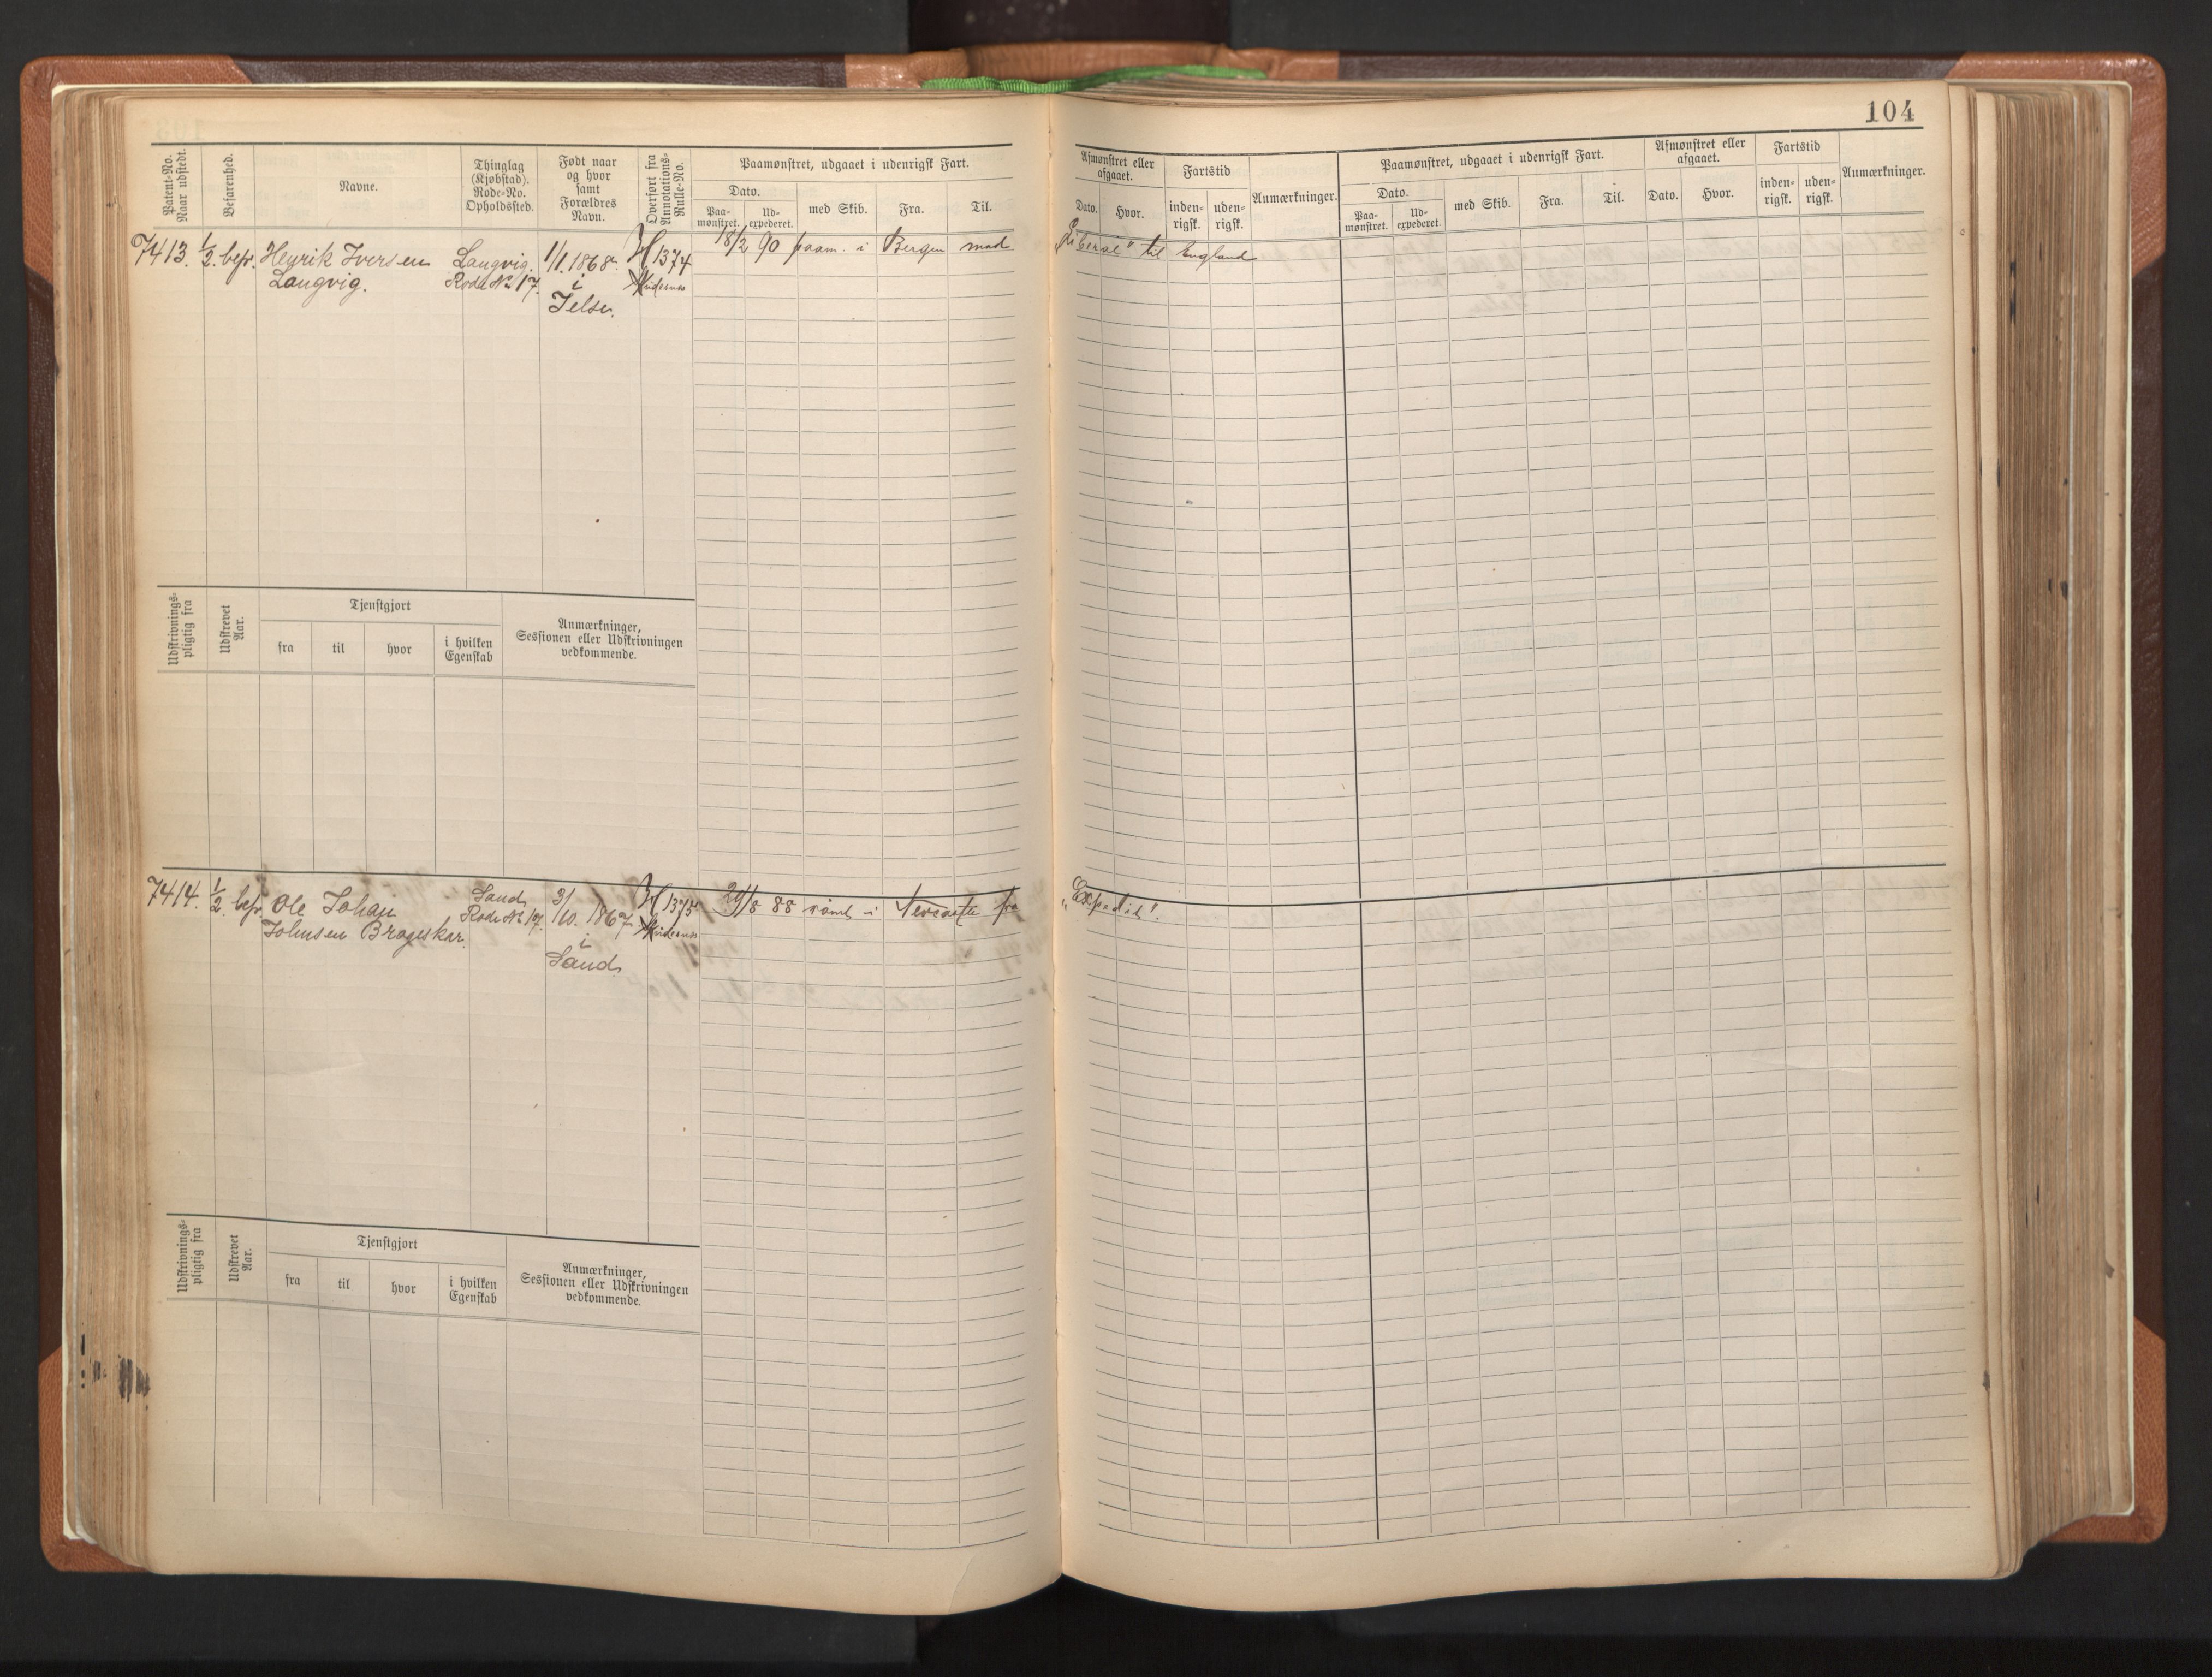 104
Patent-No.
Naar udstedt.
Befarenhed.
Navne.
Thinglag
(Kjøbstad).
Rode-No.
Opholdssted.
Født naar
og hvor
samt
Forældres
Navn.
Overført fra
Annotations-
Rulle-No.
Paamønstret, udgaaet i udenrigsk Fart.
Dato.
Paa-
mønstret.
Ud-
expederet.
med Skib.
Fra.
Til.
Afmønstret eller
afgaaet.
Dato.
Hvor.
Fartstid
inden-
rigsk.
uden-
rigsk.
Anmærkninger.
Paamønstret, udgaaet i udenrigsk Fart.
Dato.
Paa-
mønstret.
Ud-
expederet.
med Skib.
Fra.
Til.
Afmønstret eller
afgaaet.
Dato.
Hvor.
Fartstid
inden-
rigsk.
uden-
rigsk.
Anmærkninger.
7413.
1/2 befr.
Henrik Iversen
Langvig.
Langvig.
Rode No 17.
1/1. 1868
i
Jelse.
1374
18/2 90 paam. i Bergen med
"Liberal" til England
Udskrivnings-
pligtig fra
Udskrevet
Aar.
Tjenstgjort
fra
til
hvor
i hvilken
Egenskab
Anmærkninger,
Sessionen eller Udskrivningen
vedkommende.
7414.
1/2. befr.
Ole Johan
Johnsen Brageskar.
Sand
Rode No 17.
3/10. 1867
i
Sand
1375
29/8 88 rømt i fra
"Expedit".
Udskrivnings-
pligtig fra
Udskrevet
Aar.
Tjenstgjort
fra
til
hvor
i hvilken
Egenskab
Anmærkninger,
Sessionen eller Udskrivningen
vedkommende.